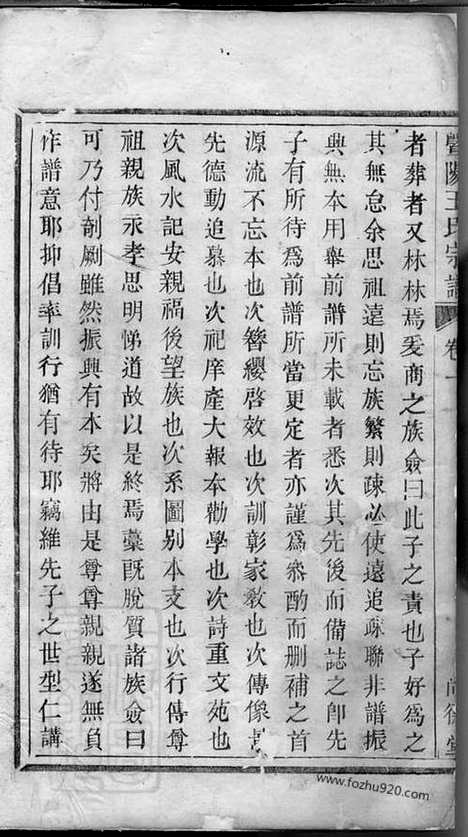 暨陽王氏宗譜 卷一
者葬者又林林焉爰商之族僉曰此子之責也子好爲之
其無怠余思祖遠則忘族繁則疎必使遠追疎聯非譜振
興無本用舉前譜所未載者悉次其先後而備誌之卽先
子有所待爲前譜所當更定者亦謹爲叅酌而删補之首
源流不忘本也次簪纓啓效也次訓彰家敎也次傳像書
先德動追慕也次祀庠產大報本勸學也次詩重文苑也
次風水記安親福後望族也次系圖别本支也次行傳尊
祖親族永孝思明悌道故以是終焉藁旣脫質諸族僉曰
可乃付剞劂雖然振興有本矣將由是尊尊親親遂無負
作譜意耶抑倡率訓行猶有待耶竊維先子之世型仁講
www.fozhu920.com